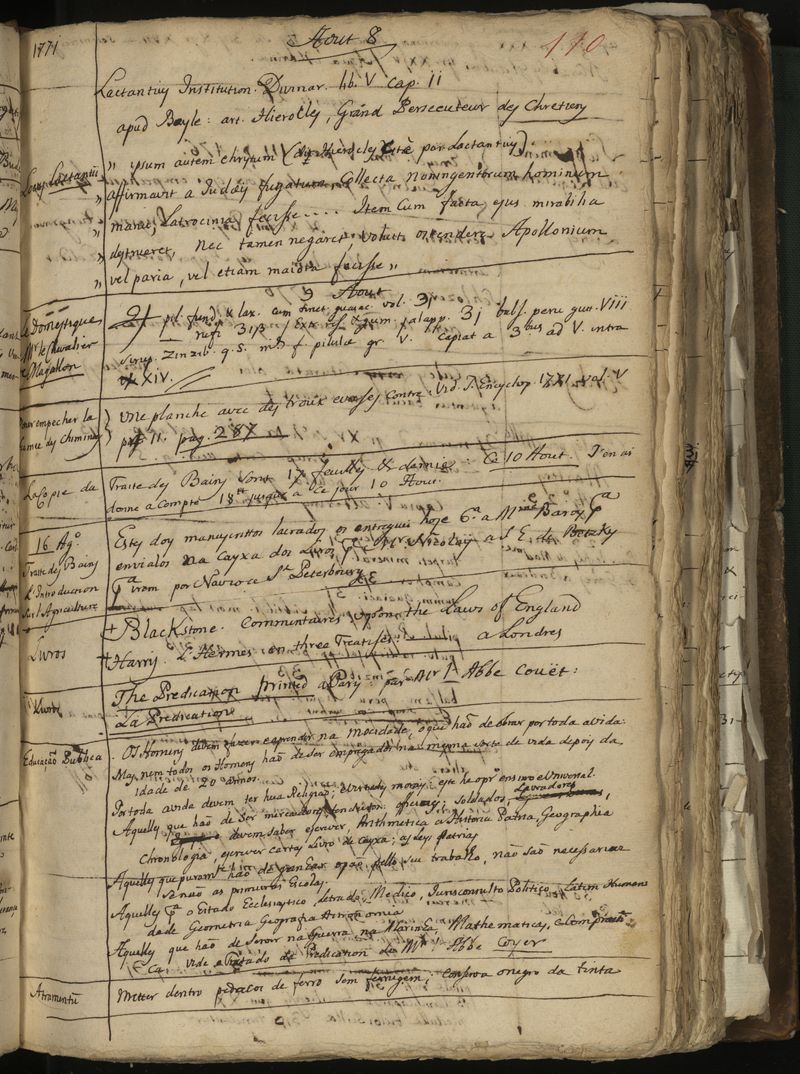 1771
Aout 8
110
Lactantius Institution. Divinar. lib. V cap. 11
apud Bayle: art. Hierocles, Grand Persecuteur des Chretiens
Lactantii
" ipsum autem chrystum
" affirmavit a Judæis fugatum, Collecta noningentorum hominum
" manu, Latrocinia fecisse .... Item Cum facta ejus mirabilia
" destrueret, nec tamen negaret, voluit ostendere Apollonium
" vel paria, vel etiam maiora fecisse "
9 Aout
Domestique
Mr le Chevalier
de Magallon
cum tinct. guaiac. vol. 3j
jalapp. 3j bals. peru gutt. VIII
Sirup. Zinzib. q. s. m. f. pilulæ gr. V. capiat a 3bus ad V. intra
XIV.
pour empecher la
fumée des chiminées
Une planche avec des troux contre Vid. J. Encyclop. 1771. vol. V
p. 11. pag. 287
La Copie du
Traité des Bains sont 17 feuilles & demie: Ce 10 Aout. J'en ai
donné a compte 18 jusque a ce jour 10 Aout.
16 Ag.o
Traité des Bains
L'Introduction
sur l'Agriculture
Estes dous manuscrittos lacrados os entreguei hoje 6.a a M.me Baroy p.a
envialos na Cayxa dos Livros a S. E. de Betzky
p.a irem por Navio a St. Peterbourg
Livros
+ Blackstone. Commentaires upon the Laws of England
+ Harris. L'Hermes, on three Treatises. a Londres
The Predication Printed a Paris: par Mr l'Abbe Couët:
La Predication
Educação Publica
Os Homens devem aprender na Mocidade, o que hão de obrar por toda a vida:
Mas nem todos os Homens hão de ser empregados na mesma sorte de vida depois da
idade de 20 annos.
Por toda a vida devem ter hua Religião; e Virtudes moraes: este he o pr.o ensino e Universal.
Aquelles que hão de ser mercadores, officiaes; Soldados, Lavradores,
devem saber escrever, Arithmetica a Historia Patria, Geographia
Chronologia, escrever cartas Livro de Cayxa; as Leis Patrias
Aquelles que puram.te hão de ganhar o pão pello seu trabalho, não são necessarias
senão as primeiras Escolas.
Aquelles p.a o Estado Ecclesiastico, Letrado, Medico, Jurisconsulto Politico, Latim, Humani
dade Geometria Geografia Astronomia
Aquelles que hão de servir na Guerra na Marinha, Mathematicas, e
vide o Tratado de Predication de Mr l'Abbe Coyer
Atramentũ
Metter dentro pedaços de ferro sem ferrugem; conserva o negro da tinta